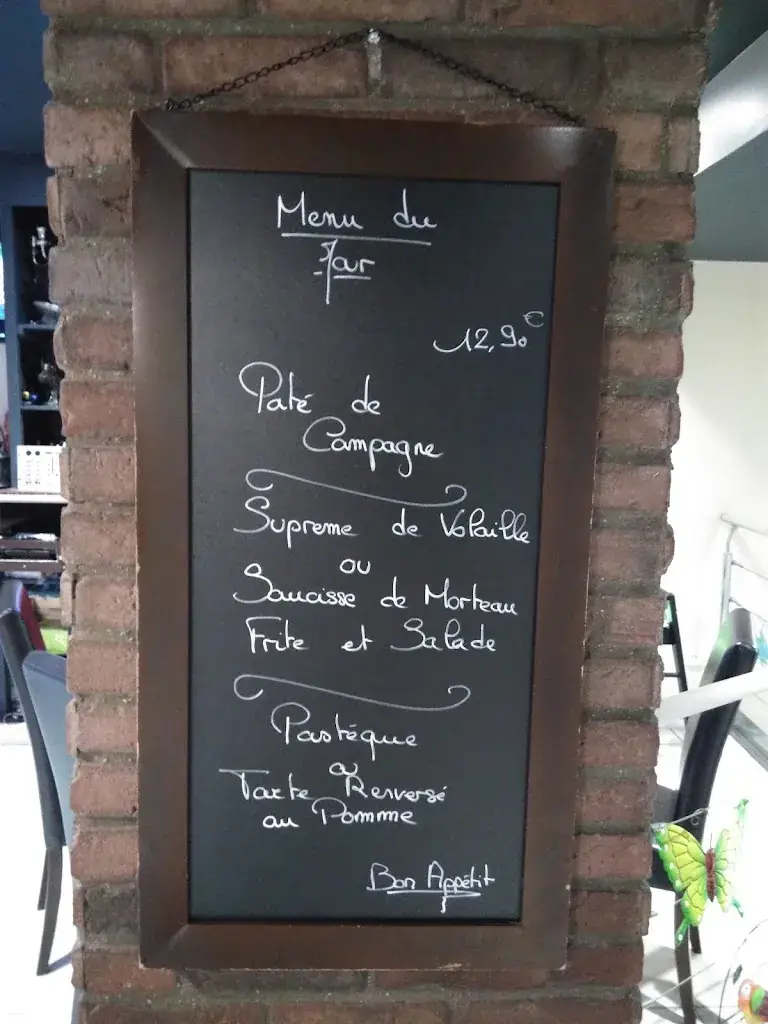 Menu du
Jour
12,90€
Paté de
Campagne
Supreme de Volaille
ou
Saucisse de Morteau
Frite et Salade
Pastéque
ou
Tarte Renversé
au Pomme
Bon Appétit